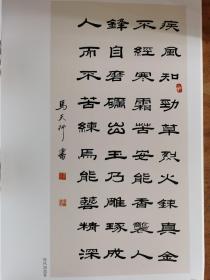 疾風知勁草烈火鍊真金
不經寒霜苦安能香襲人
鋒自磨礪出玉乃雕琢成
人而不苦練焉能藝精深
馬天 書